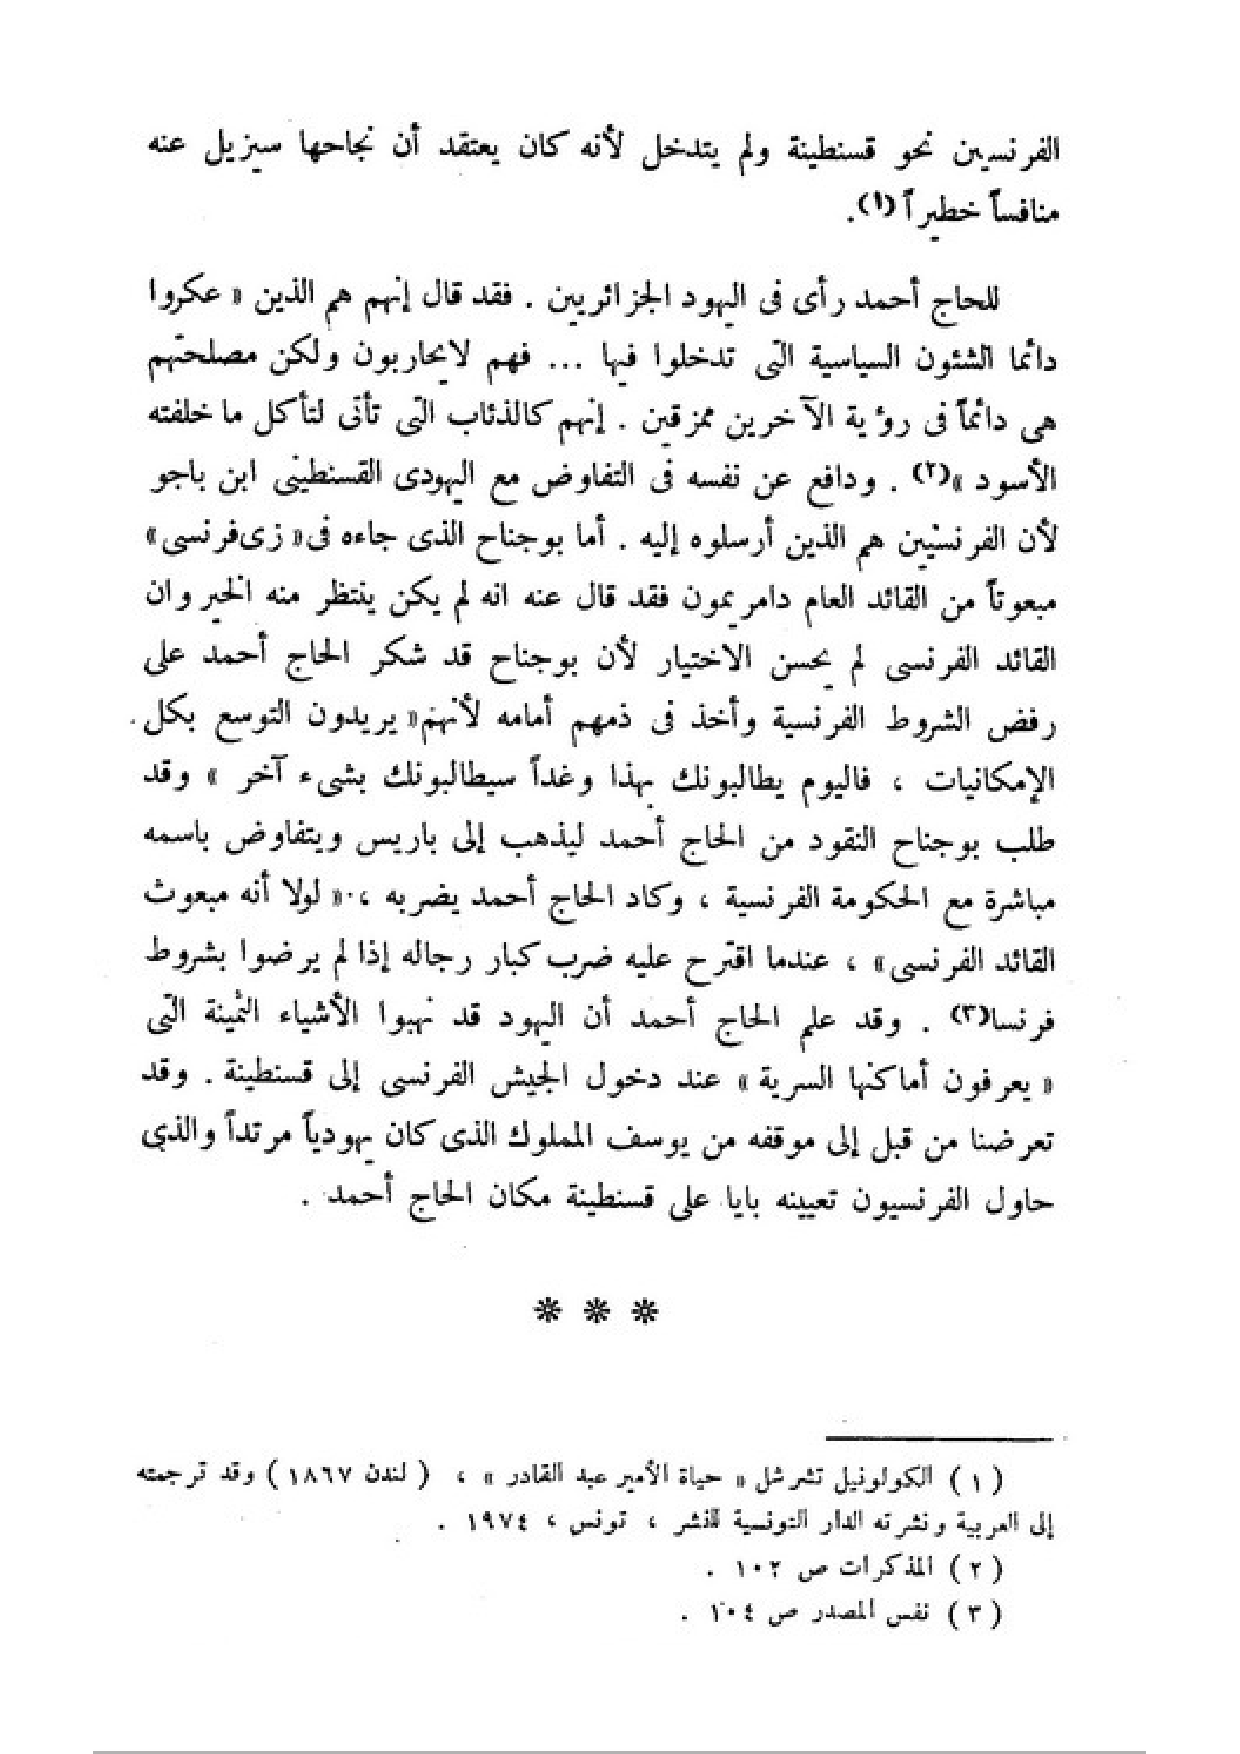 الفرنسيين نحو قسنطينة ولم يتدخل لأنه كان يعتقد أن نجاحها سيزيل عنه
منافساً خطيراً (١).
للحاج أحمد رأى فى اليهود الجزائريين . فقد قال إنهم هم الذين « عكروا
دائما الشئون السياسية التى تدخلوا فيها ... فهم لايحاربون ولكن مصلحتهم
هى دائماً فى رؤية الآخرين ممزقين . إنهم كالذئاب التى تأتى لتأكل ما خلفته
الأسود »(٢) . ودافع عن نفسه فى التفاوض مع اليهودى القسنطينى ابن باجو
لأن الفرنسيين هم الذين أرسلوه إليه . أما بوجناح الذى جاءه فى « زى فرنسى »
مبعوثاً من القائد العام دامريمون فقد قال عنه انه لم يكن ينتظر منه الخير وان
القائد الفرنسى لم يحسن الاختيار لأن بوجناح قد شكر الحاج أحمد على
رفض الشروط الفرنسية وأخذ فى ذمهم أمامه لأنهم « يريدون التوسع بكل
الإمكانيات ، فاليوم يطالبونك بهذا وغداً سيطالبونك بشىء آخر » وقد
طلب بوجناح النقود من الحاج أحمد ليذهب إلى باريس ويتفاوض باسمه
مباشرة مع الحكومة الفرنسية ، وكاد الحاج أحمد يضربه ، « لولا أنه مبعوث
القائد الفرنسى » ، عندما اقترح عليه ضرب كبار رجاله إذا لم يرضوا بشروط
فرنسا(٣) . وقد علم الحاج أحمد أن اليهود قد نهبوا الأشياء الثمينة التى
« يعرفون أماكنها السرية » عند دخول الجيش الفرنسى إلى قسنطينة . وقد
تعرضنا من قبل إلى موقفه من يوسف المملوك الذى كان يهودياً مرتداً والذى
حاول الفرنسيون تعيينه بايا على قسنطينة مكان الحاج أحمد .
* * *
( ١ ) الكولونيل تشرشل « حياة الأمير عبد القادر » ، ( لندن ١٨٦٧ ) وقد ترجمته
إلى العربية ونشرته الدار التونسية للنشر ، تونس ، ١٩٧٤ .
( ٢ ) المذكرات ص ١٠٢ .
( ٣ ) نفس المصدر ص ١٠٤ .